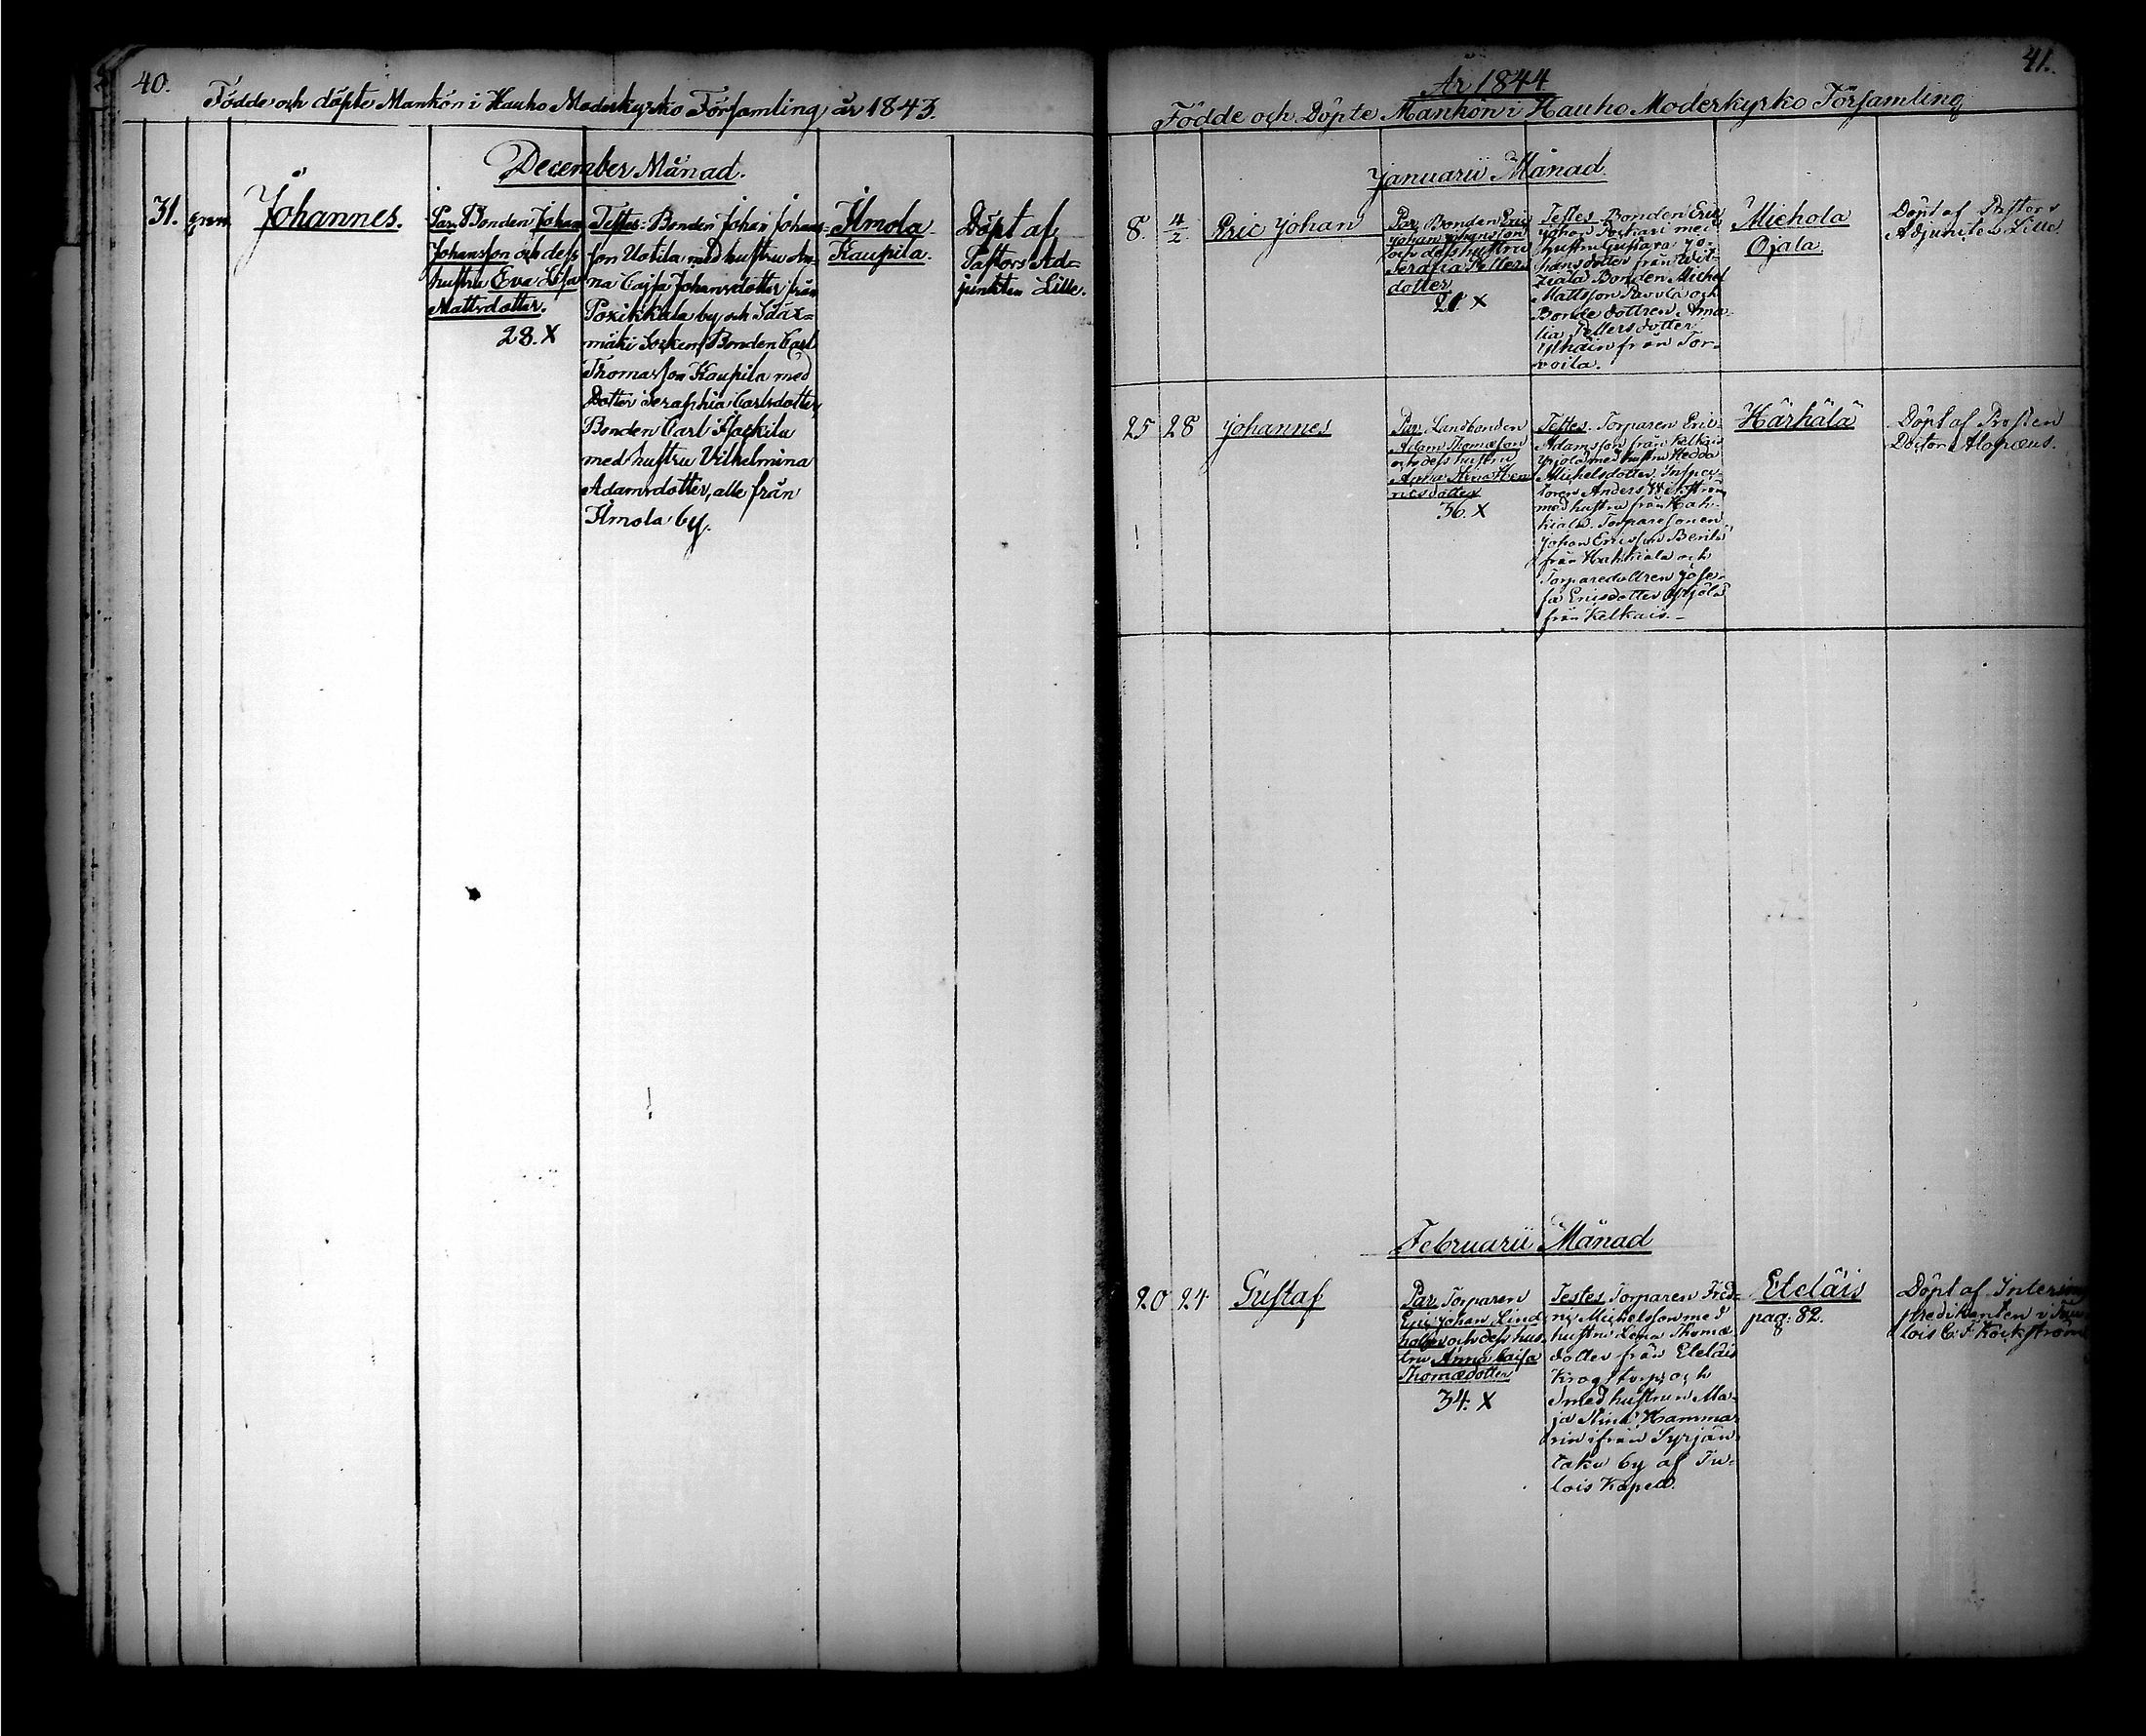 40.
Födde och döpte Mankön i Hauho Moderkyrko Församling år 1843.
December Månad.
31.
Johannes.
Par. Bonden Johan
Johansson och dess
hustru Eva Lisa
Mattsdotter.
28. X
Testes. Bonden Johan Johans=
son Uotila med hustru An=
na Cajsa Johansdotter från
by och Sääx=
mäki Socken, Bonden Carl
Thomasson Kaupila med
Dotter Seraphia Carlsdotter,
Bonden Carl
med hustru Vilhelmina
Adamsdotter, alle från
Ilmola by.
Ilmola
Kaupila.
Döpt af
Pastors Ad=
junkten Lille.
41.
År 1844
Födde och Döpte Mankön i Hauho Moderkyrko Församling
Januarii Månad.
8.
4/2.
Eric Johan
Par. Bonden Eric
Johan Johansson
och dess hustru
Serafia Petters
dotter
21. X
Testes Bonden Eric
Johan med
hustru Gustava Jo=
hansdotter från
Bonden Michel
Mattsson och
Bonde dottren Ama=
lia Pettersdotter
från Tor=
voila.
Miehola
Ojala.
Döpt af Pastors
Adjunkten Lille
25
28
Johannes
Par. Landbonden
Adam Thomasson
och dess hustru
Anna Stina Hen
ricsdotter
36. X
Testes. Torparen Eric
Adamsson från Kelkais
Yrjölä med hustru Hedda
Michelsdotter, Inspec=
toren Anders
med hustru från Hah=
kiala. Torparesonen
Johan Ericsson
från Hahkiala och
Torparedottren Jose=
fa Ericsdotter Yrjölä
från Kelkais.
Härhälä
Döpt af Prosten
Doctor Alopæus.
Februarii Månad
20
24
Gustaf
Par. Torparen
Eric Johan Lind
holm och dess hus
tru Anna Caisa
Thomædotter
34. X
Testes Torparen Fred=
ric Michelsson med
hustru Lena Thomæ
dotter från Eteläis
Krogstorp och
Smedhustrun Ma=
ja Stina Hammar
ifrån Syrjän
taka by af Tu=
lois Kapell.
Eteläis
pag: 82.
Döpt af Interims
predikanten i Tuu
lois C. F.